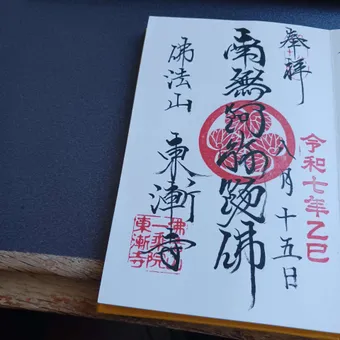 奉拝
令和七年乙巳
八月十五日
南無阿彌陀佛
佛法山
東漸寺
一乗院
東漸寺